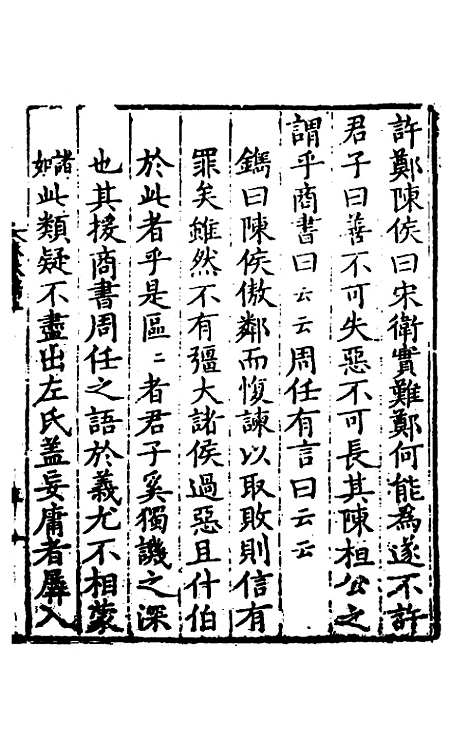 許鄭陳侯曰宋衛實難鄭何能為遂不許
君子曰善不可失惡不可長其陳桓公之
謂乎商書曰云云周任有言曰云云
鐫曰陳侯傲鄰而愎諫以取敗則信有
罪矣雖然不有彊大諸侯過惡且什伯
於此者乎是區〻者君子奚獨譏之深
也其援商書周任之語於義尤不相蒙
諸如此類疑不盡出左氏盖妄庸者孱入